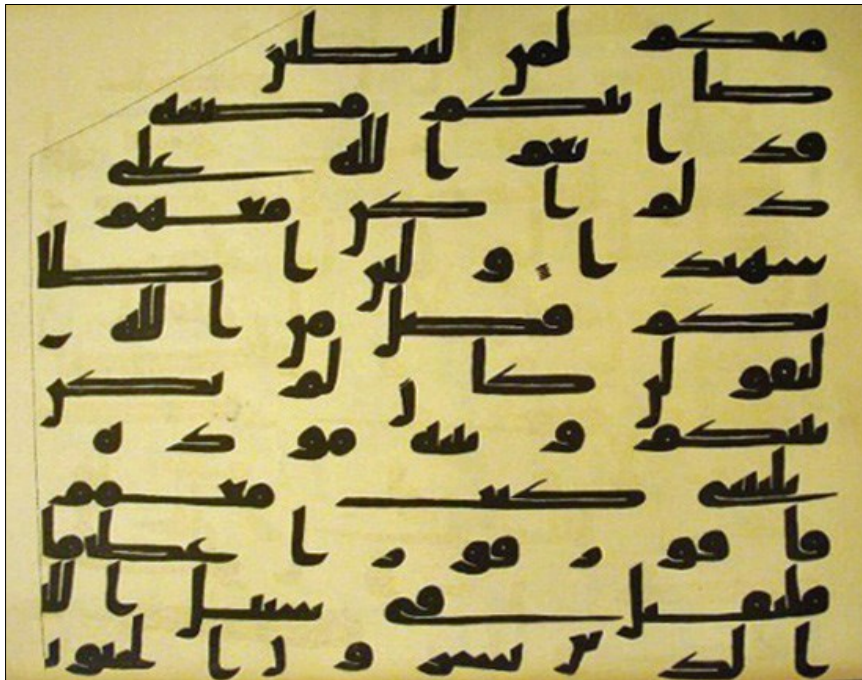 منكم لمن ليبطئن
صابتكم مصيبة
قد انعم الله علي
ذ لم اكن معهم
شهيدا ولئن اصا
بكم فضل من الله
ليقولن كان لم تكن
بينكم وبينه مودة
يليتني كنت معهم
فافوز فوزا عظيما
فليقتل في سبيل الله
الذين يشرون